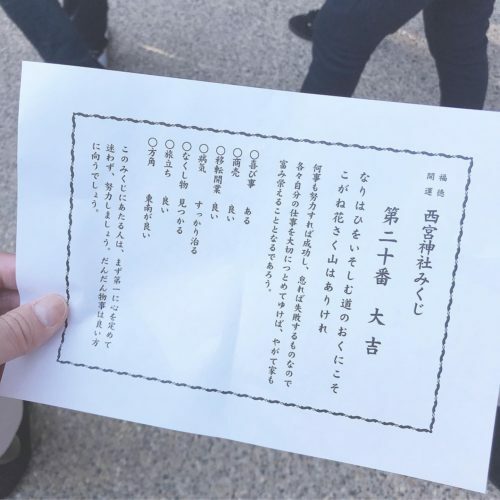 福徳
開運
西宮神社みくじ
第二十番 大吉
なりはひをいそしむ道のおくにこそ
こがね花さく山はありけれ
何事も努力すれば成功し、怠れば失敗するものなので
各々自分の仕事を大切につとめてゆけば、やがて家も
富み栄えることとなるであろう。
〇喜び事 ある
〇商売 良い
〇移転開業 良い
〇病気 すっかり治る
〇なくし物 見つかる
〇旅立ち 良い
〇方角 東南が良い
このみくじにあたる人は、まず第一に心を定めて
迷わず、努力しましょう。だんだん物事は良い方
に向うでしょう。